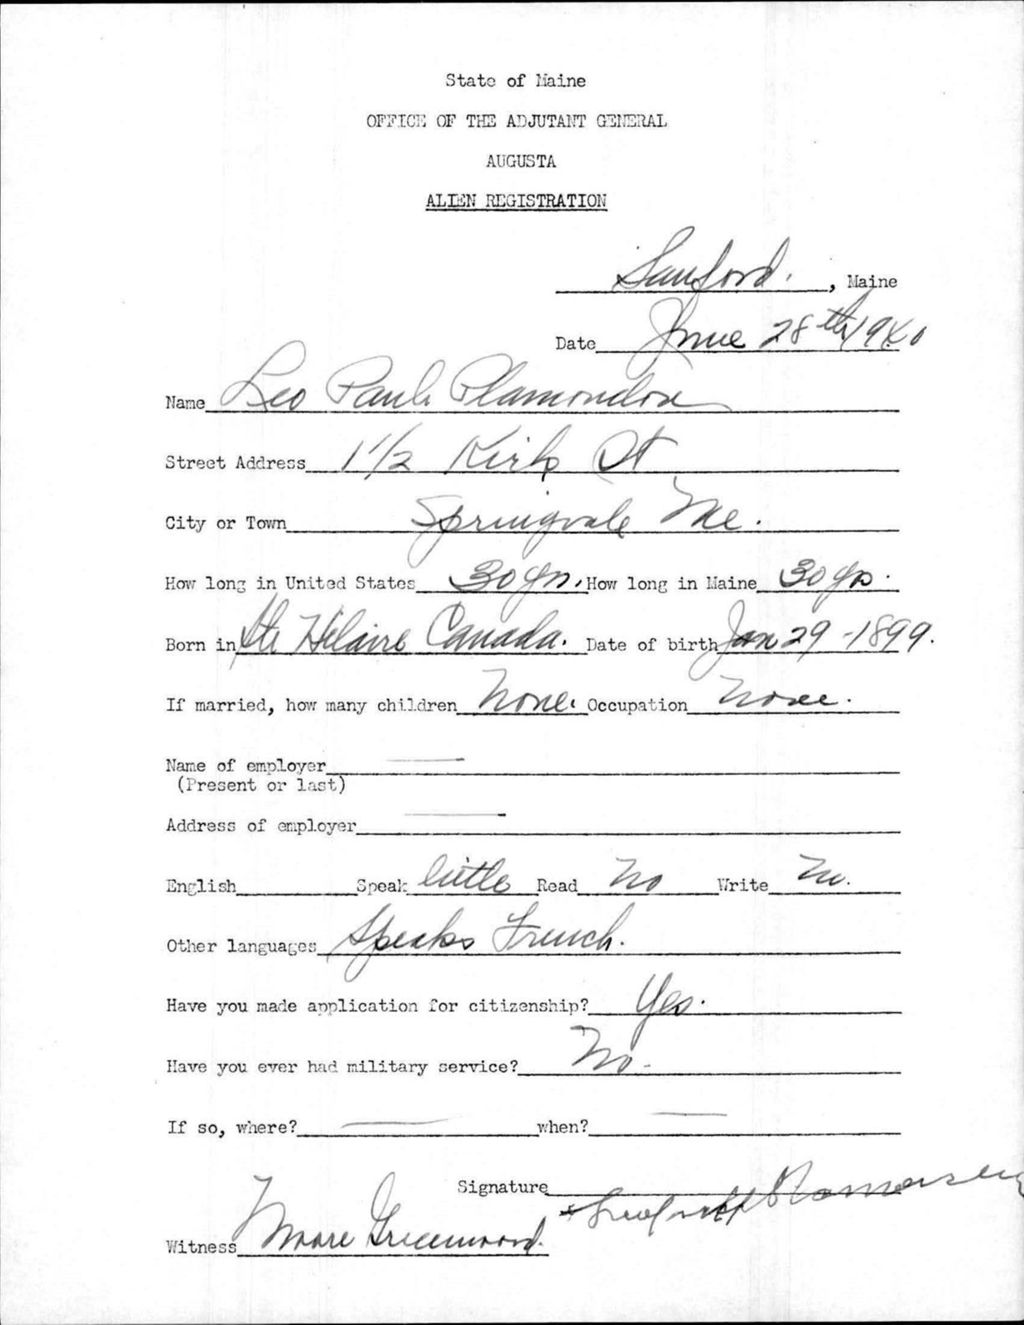 State of Maine
OFFICE OF THE ADJUTANT GENERAL
AUGUSTA
ALIEN REGISTRATION
Sanford. , Maine
Date June 28th 1940
Name Leo Paul Plamondon
Street Address 1 1/2 Kirk St
City or Town Springvale Me.
How long in United States 30 yrs. How long in Maine 30 yrs.
Born in Ste Hilaire Canada. Date of birth Jan 29 - 1899.
If married, how many children None. Occupation None.
Name of employer
(Present or last)
Address of employer
English Speak little Read No Write No.
Other languages Speaks French.
Have you made application for citizenship? Yes.
Have you ever had military service? No -
If so, where? when?
Signature
Witness Moore Greenwood.